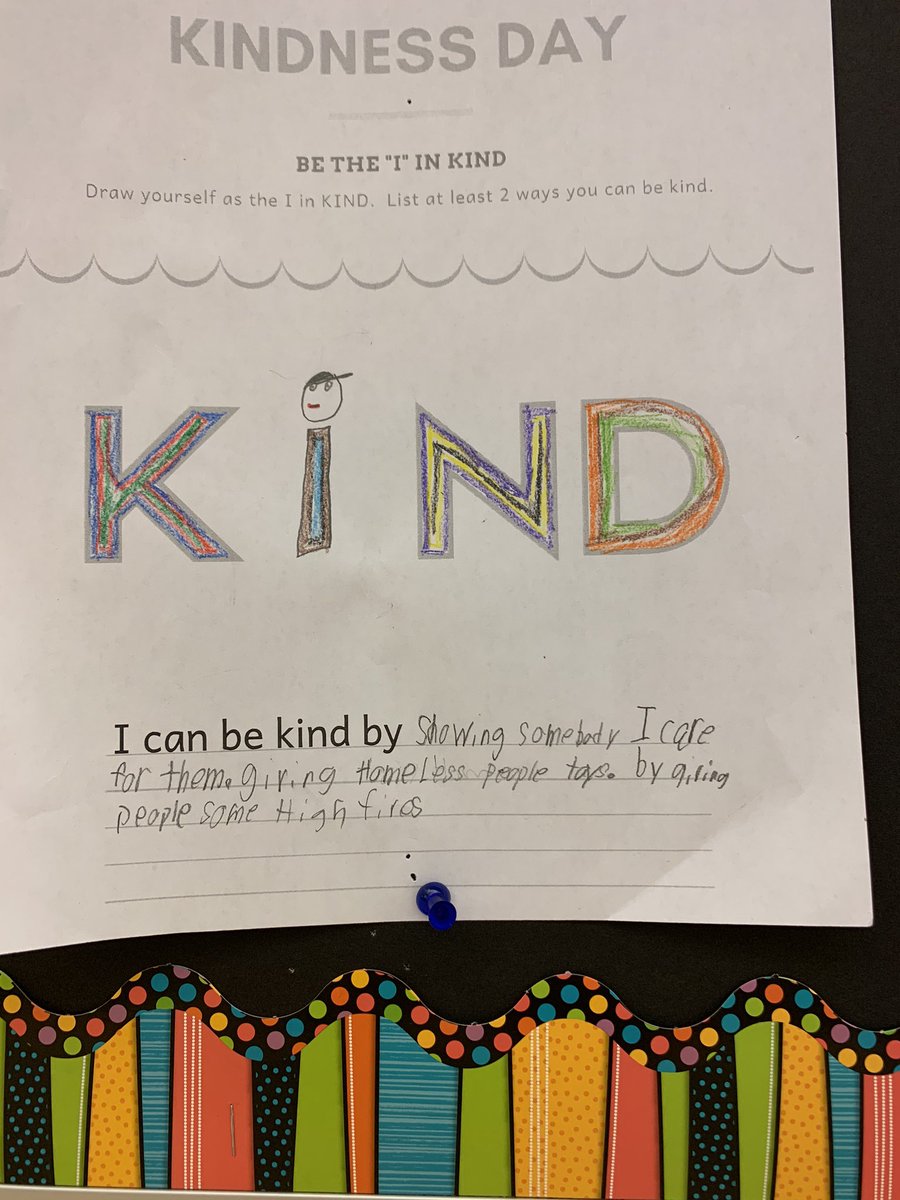 KINDNESS DAY
BE THE "I" IN KIND
Draw yourself as the I in KIND. List at least 2 ways you can be kind.
KiND
I can be kind by Showing somebody I care
for them. giving HomeLess people toys. by giving
people some High fives